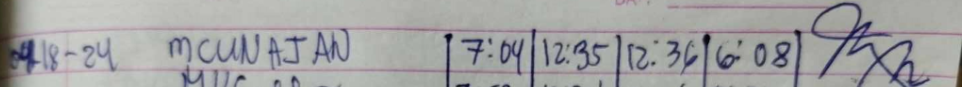 04-18-24 MCUNAJAN | 7:04 | 12:35 | 12:36 | 6:08 |